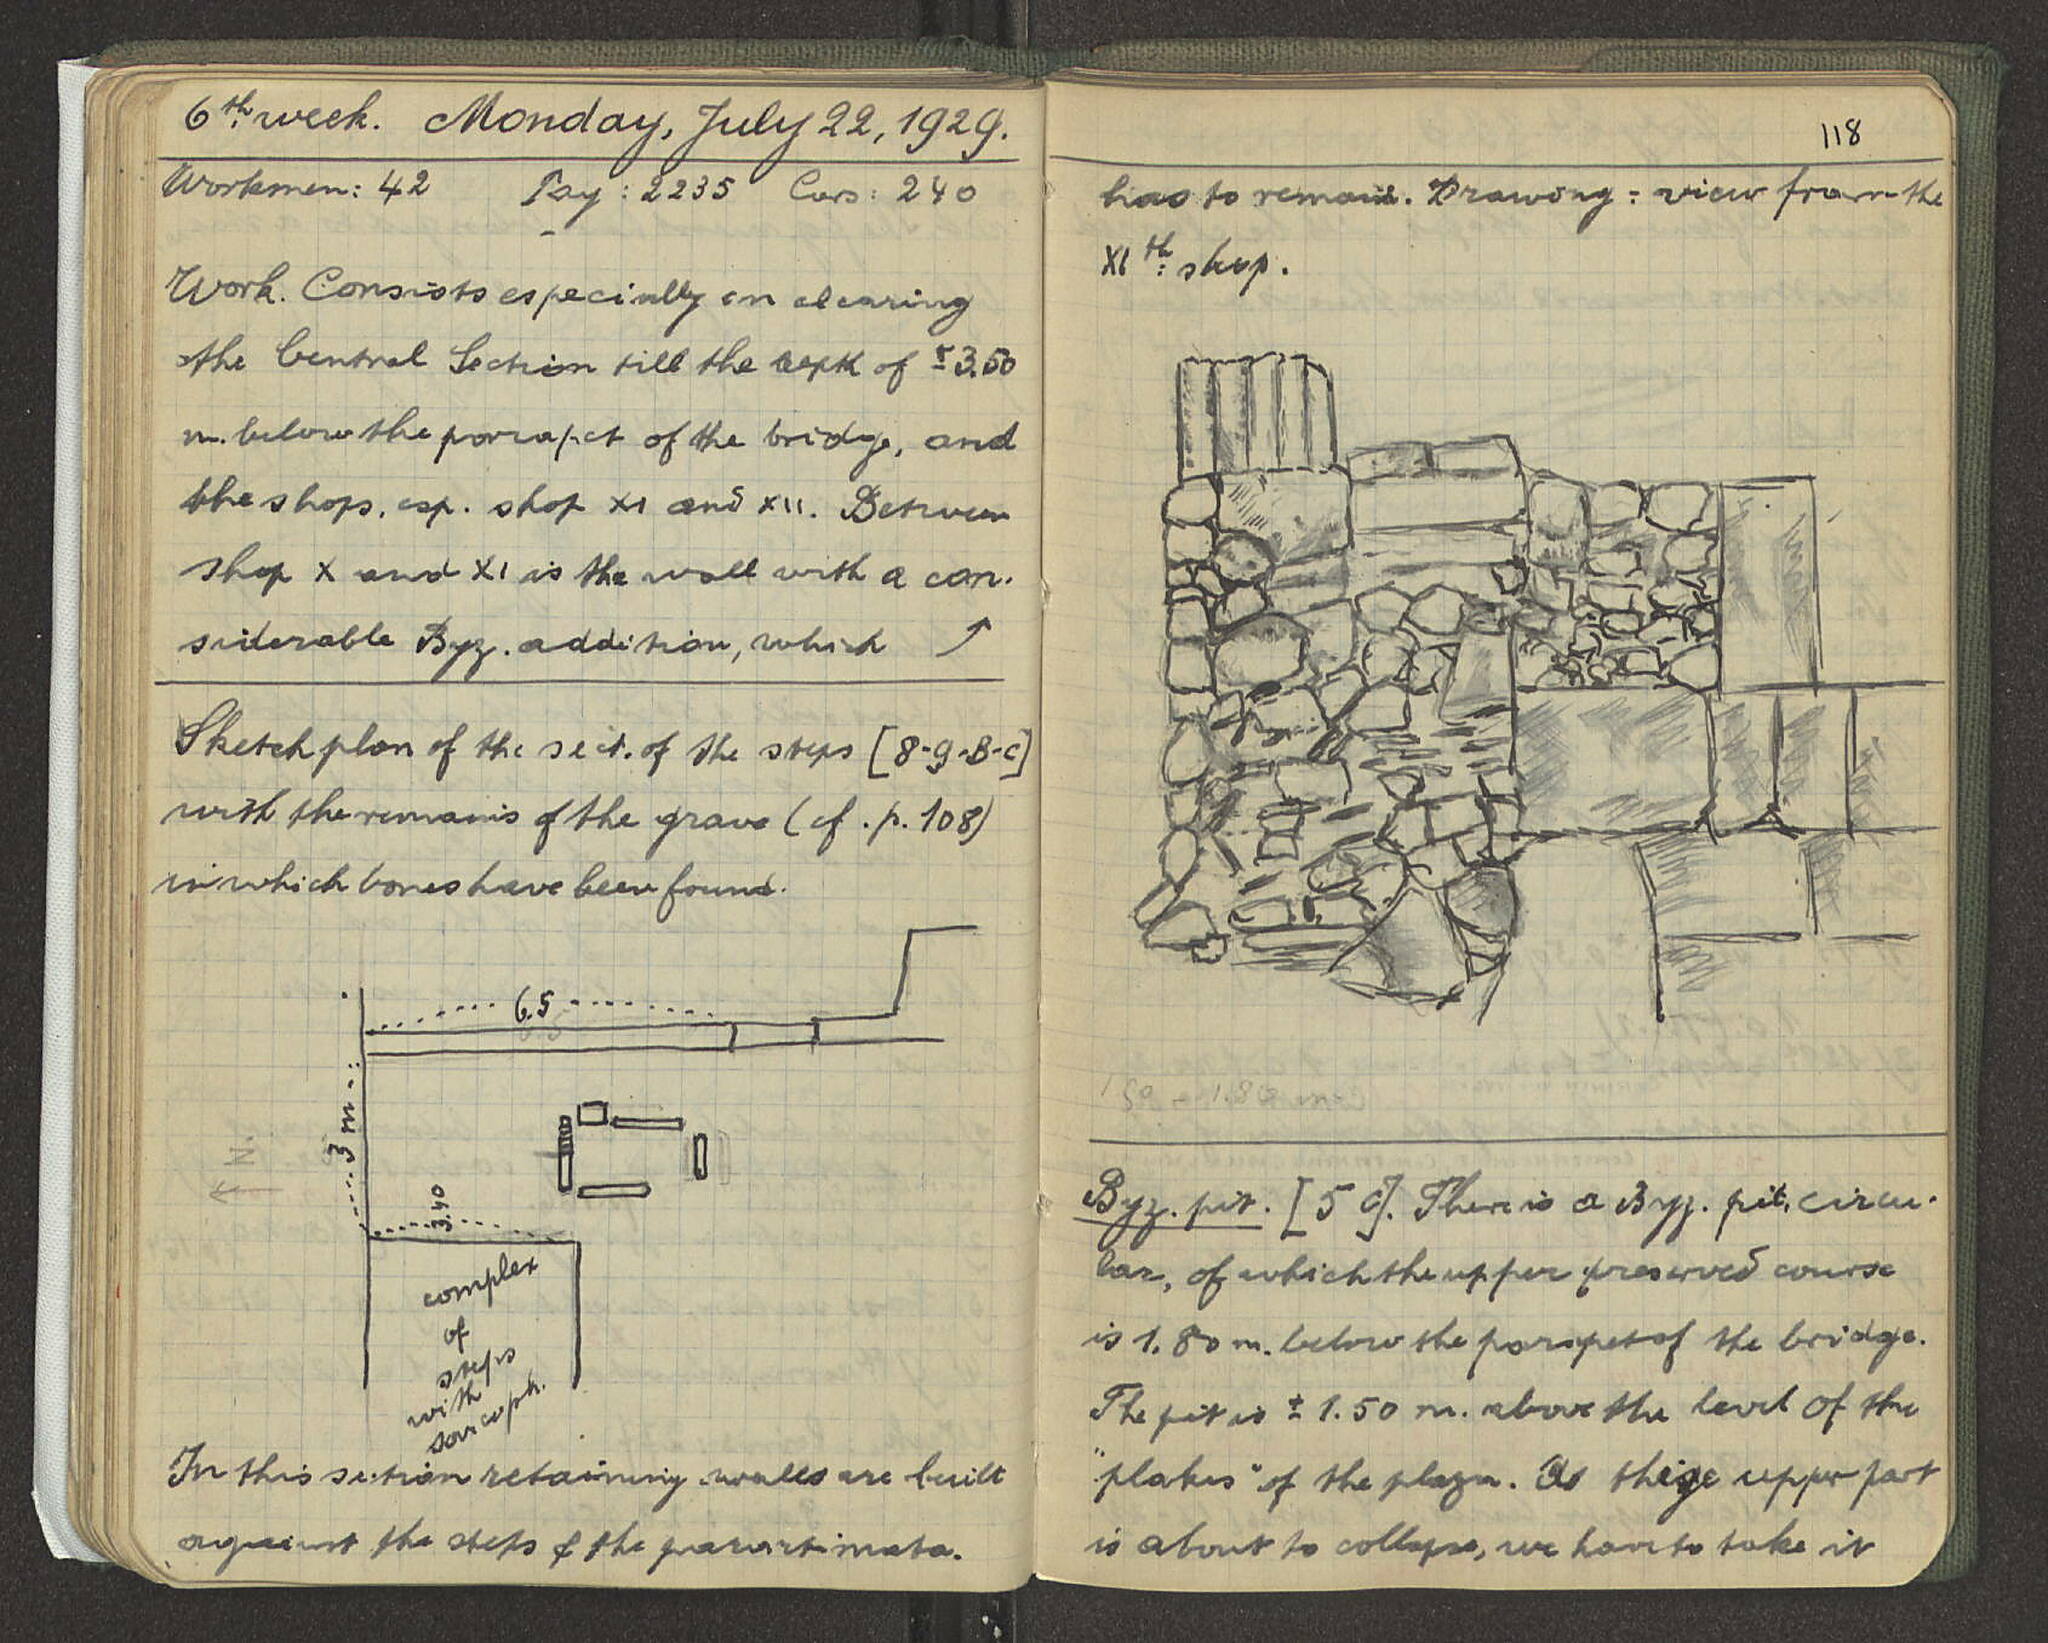 6th. week. Monday, July 22, 1929.
Workmen: 42 Pay: 2235 Cars: 240
Work. Consists especially in clearing
the Central Section till the depth of ± 3.50
m. below the parapet of the bridge, and
the shops, esp. shop XI and XII. Between
shop X and XI is the wall with a con-
siderable Byz. addition, which ↗
Sketch plan of the sect. of the steps [8-9-B-C]
with the remains of the grave (cf. p. 108)
in which bones have been found.
6.5
3 m
N
3.40
complex
of
steps
with
sarcoph.
In this section retaining walls are built
against the steps & the parartimata.
118
has to remain. Drawing = view from the
XIth: shop.
Byz. pit. [5 C]. There is a Byz. pit, circu-
lar, of which the upper preserved course
is 1.80 m. below the parapet of the bridge.
The pit is ± 1.50 m. above the level of the
"plakes" of the plaza. As the upper part
is about to collapse, we have to take it